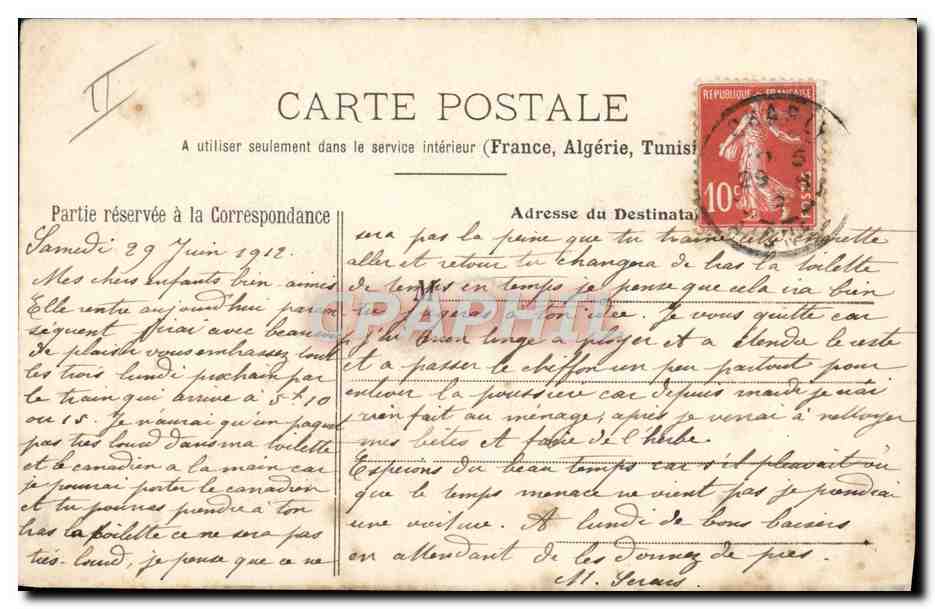 II
CARTE POSTALE
A utiliser seulement dans le service intérieur (France, Algérie, Tunisi
REPUBLIQUE FRANÇAISE
10c
POSTES
Partie réservée à la Correspondance
Adresse du Destinata
Samedi 29 Juin 1912.
Mes chers enfants bien aimés
Elle rentre aujourd'hui par
séquent j'irai avec beaucoup
de plaisir vous embrasser tout
les trois lundi prochain par
le train qui arrive à 5h 10
ou 15 Je n'aurai qu'un paquet
pas très lourd dans ma toilette
et le canadien a la main car
je pourrai porter le canadien
et tu pourras prendre à ton
bras la toilette ce ne sera pas
très-lourd, je pense que ce ne
sera pas la peine que tu traine
aller et retour tu changera de bras la toilette
M
de temps en temps je pense que cela ira bien
tu jugeras à ton idée. Je vous quitte car
linge a ployer et a étendre le reste
et a passer le chiffon un peu partout pour
enlever la poussière car depuis mardi je n'ai
rien fait au ménage, après je verrai à nettoyer
mes bêtes et faire de l'herbe.
Espérons du beau temps car s'il pleuvait ou
que le temps menace ne vient pas je prendrai
une voiture. A lundi de bons baisers
en attendant de les donner de près.
M.
CRAPHIL